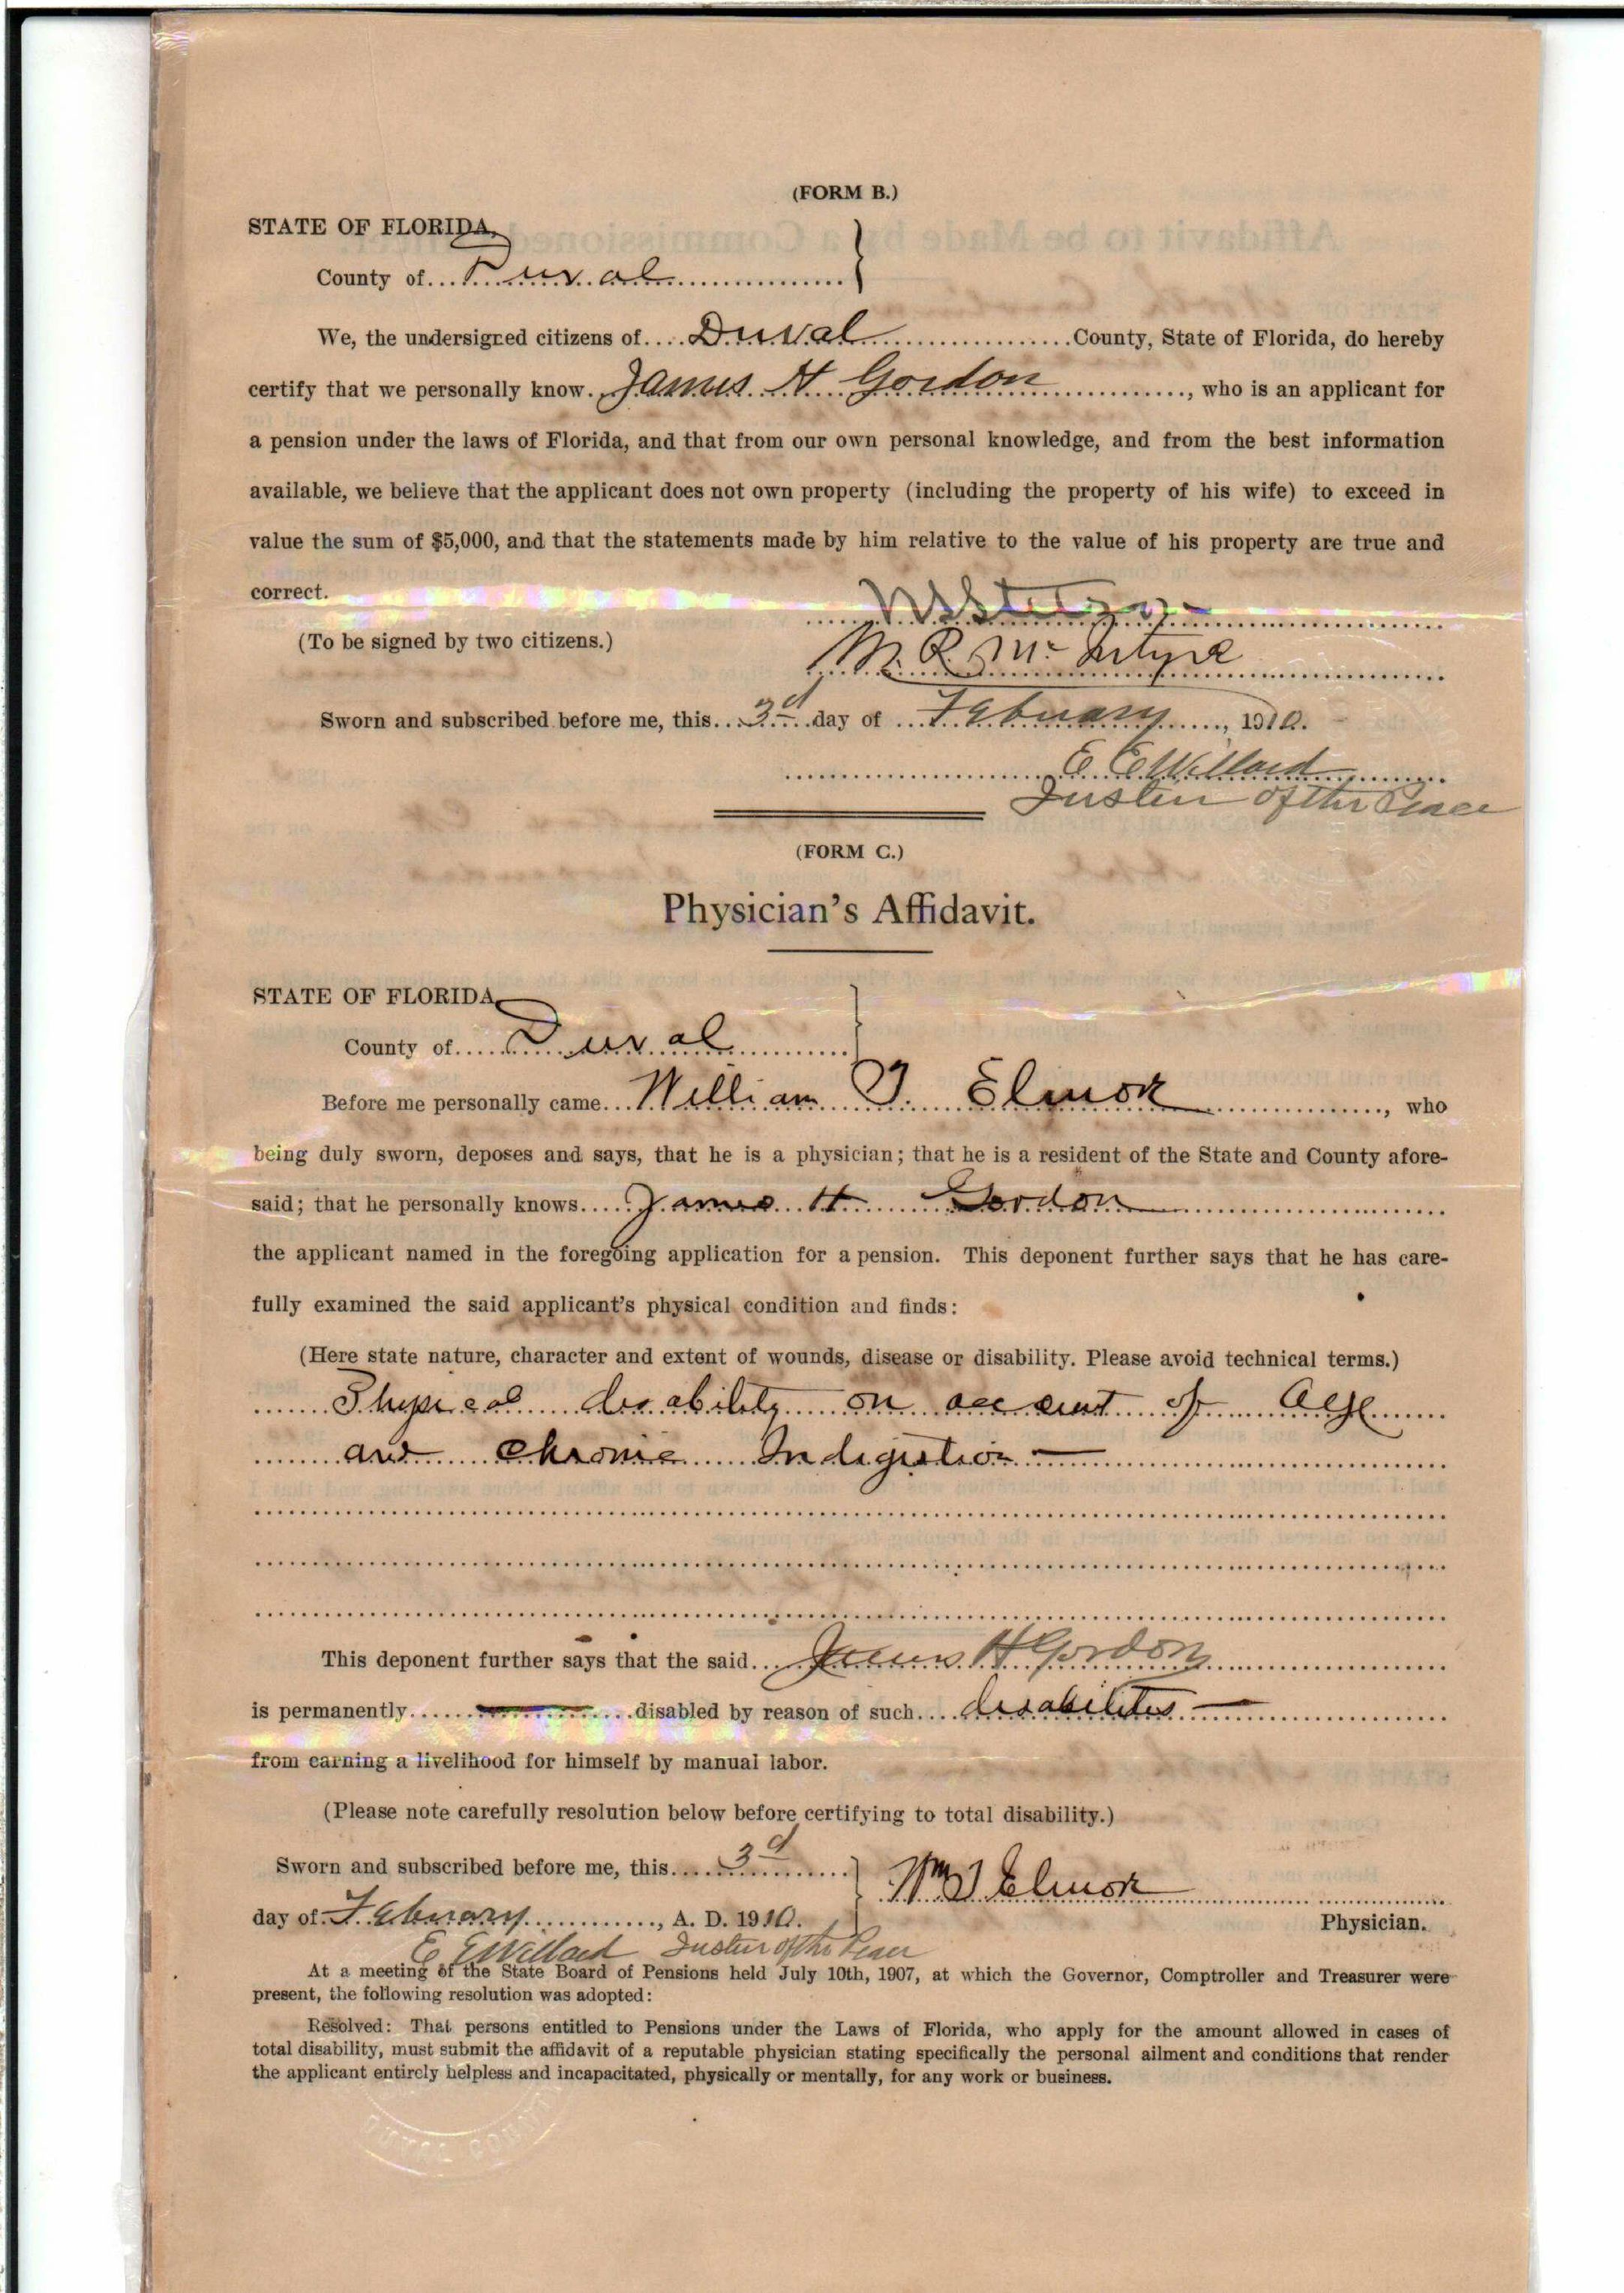 (FORM B.)
STATE OF FLORIDA,
County of Duval
We, the undersigned citizens of Duval County, State of Florida, do hereby
certify that we personally know James H Gordon, who is an applicant for
a pension under the laws of Florida, and that from our own personal knowledge, and from the best information
available, we believe that the applicant does not own property (including the property of his wife) to exceed in
value the sum of $5,000, and that the statements made by him relative to the value of his property are true and
correct.
(To be signed by two citizens.)
M. R. McIntyre
Sworn and subscribed before me, this 3d day of February, 1910.
E E Willard
Justice of the Peace
(FORM C.)
Physician's Affidavit.
STATE OF FLORIDA
County of Duval
Before me personally came William J. Elmore, who
being duly sworn, deposes and says, that he is a physician; that he is a resident of the State and County afore-
said; that he personally knows James H Gordon
the applicant named in the foregoing application for a pension. This deponent further says that he has care-
fully examined the said applicant's physical condition and finds:
(Here state nature, character and extent of wounds, disease or disability. Please avoid technical terms.)
Physical disability on account of Age
and Chronic Indigestion
This deponent further says that the said James H Gordon
is permanently disabled by reason of such disabilities
from earning a livelihood for himself by manual labor.
(Please note carefully resolution below before certifying to total disability.)
Sworn and subscribed before me, this 3d
Wm J Elmore
day of February, A. D. 1910.
Physician.
E E Willard Justice of the Peace
At a meeting of the State Board of Pensions held July 10th, 1907, at which the Governor, Comptroller and Treasurer were
present, the following resolution was adopted:
Resolved: That persons entitled to Pensions under the Laws of Florida, who apply for the amount allowed in cases of
total disability, must submit the affidavit of a reputable physician stating specifically the personal ailment and conditions that render
the applicant entirely helpless and incapacitated, physically or mentally, for any work or business.
DUVAL COUNTY